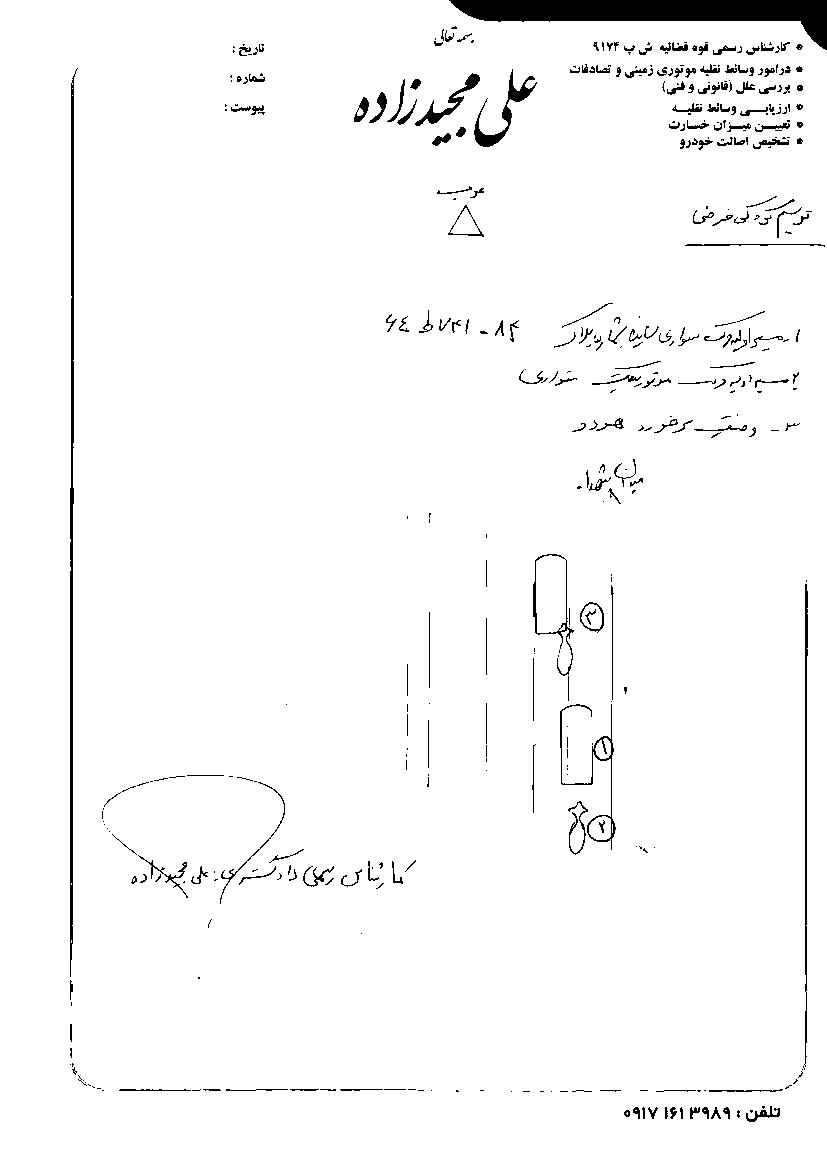 بسمه تعالی
علی مجیدزاده
• کارشناس رسمی قوه قضائیه ش پ ۹۱۷۴
• درامور وسائط نقلیه موتوری زمینی و تصادفات
• بررسی علل (قانونی و فنی)
• ارزیابی وسائط نقلیه
• تعیین میزان خسارت
• تشخیص اصالت خودرو
تاریخ :
شماره :
پیوست :
ترسیم کروکی فرضی
۱ـ مسیر اولیه حرکت سواری ساینا بشماره پلاک ۸۴ - ۷۴۱ ط ۶۴
۲ـ مسیر اولیه حرکت موتورسیکلت متواری
۳ـ وضعیت برخورد هر دو
میدان شهدا
۳
۱
۲
کارشناس رسمی دادگستری: علی مجیدزاده
تلفن : ۰۹۱۷ ۱۶۱ ۳۹۸۹